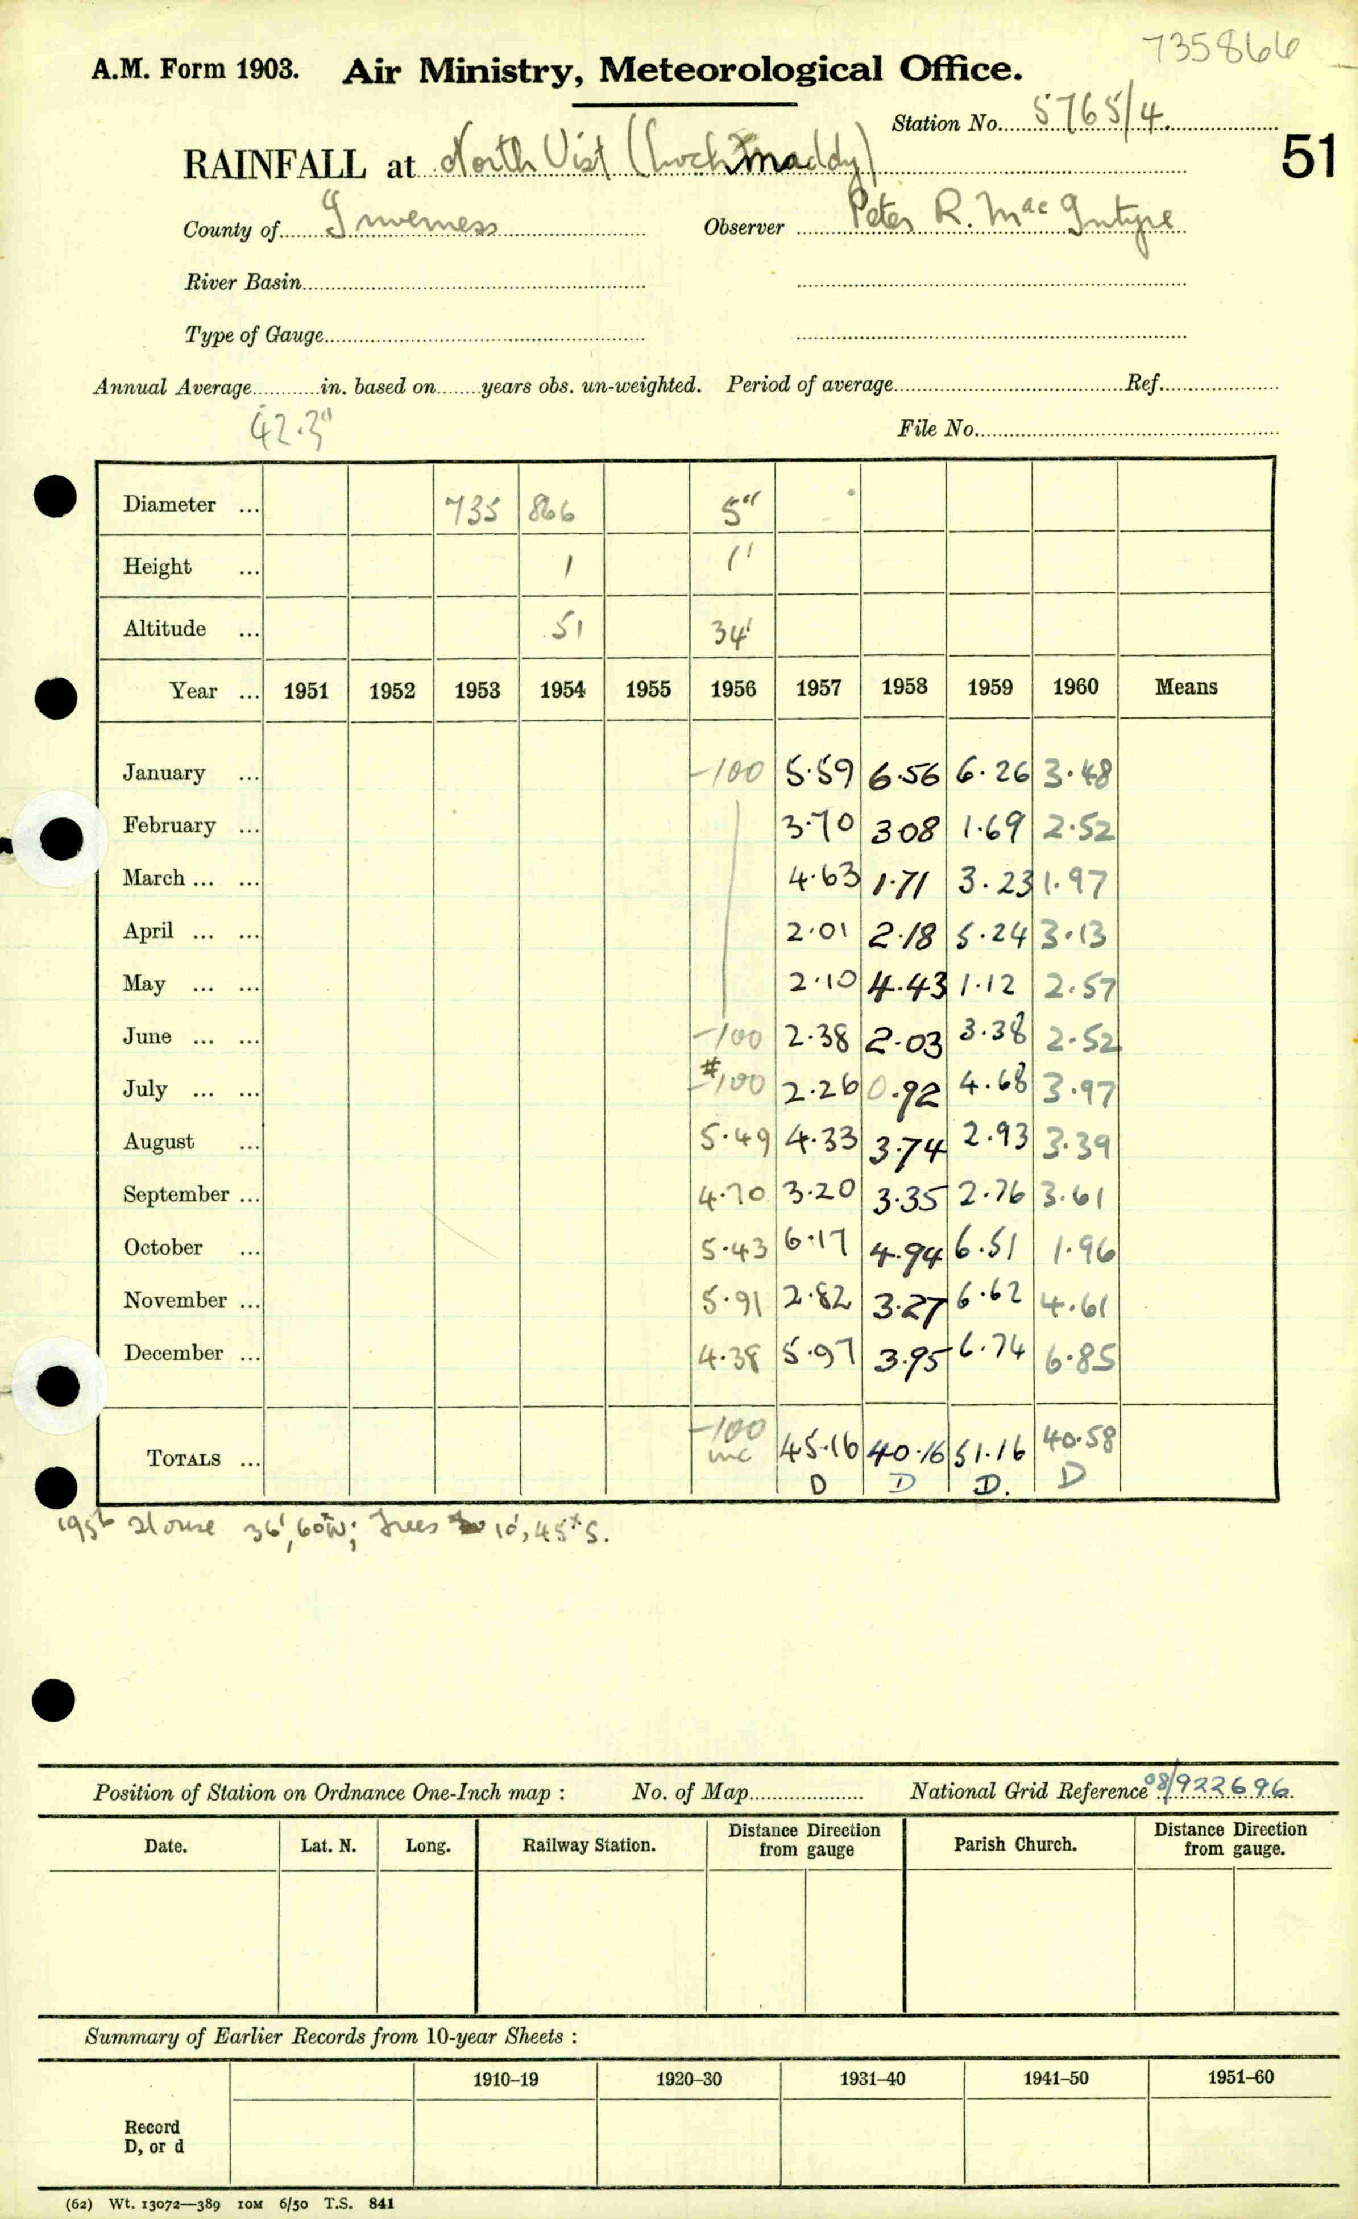 735866
A.M. Form 1903. Air Ministry, Meteorological Office.
Station No. 5765/4.
51
RAINFALL at North Uist (Lochmaddy)
County of Inverness Observer Peter R. MacIntyre
River Basin
Type of Gauge
Annual Average in. based on years obs. un-weighted. Period of average Ref.
42.3"
File No.
Diameter ... 735 866 5"
Height ... 1 1'
Altitude ... 51 34'
Year ... 1951 1952 1953 1954 1955 1956 1957 1958 1959 1960 Means
January ... -100 5.59 6.56 6.26 3.48
February ... 3.70 308 1.69 2.52
March ... ... 4.63 1.71 3.23 1.97
April ... ... 2.01 2.18 5.24 3.13
May ... ... 2.10 4.43 1.12 2.57
June ... ... -100 2.38 2.03 3.38 2.52
July ... ... -#100 2.26 0.92 4.68 3.97
August ... 5.49 4.33 3.74 2.93 3.39
September ... 4.70 3.20 3.35 2.76 3.61
October ... 5.43 6.17 4.94 6.51 1.96
November ... 5.91 2.82 3.27 6.62 4.61
December ... 4.38 5.97 3.95 6.74 6.85
TOTALS ... -100 inc 45.16 40.16 51.16 40.58
D D D. D
1956 House 36', 60°W; Trees 10', 45° S.
Position of Station on Ordnance One-Inch map : No. of Map National Grid Reference 08/922696.
Date. Lat. N. Long. Railway Station. Distance Direction from gauge Parish Church. Distance Direction from gauge.
Summary of Earlier Records from 10-year Sheets :
1910–19 1920–30 1931–40 1941–50 1951–60
Record
D, or d
(62) Wt. 13072—389 10M 6/50 T.S. 841